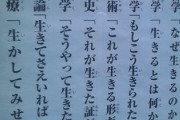 学「なぜ生きるのか
学「生きるとは何か
学「もしこう生きられた
術「これが生きる形
史「それが生きた証
学「そうやって生きた
論「生きてさえいれば
療「生かしてみせ